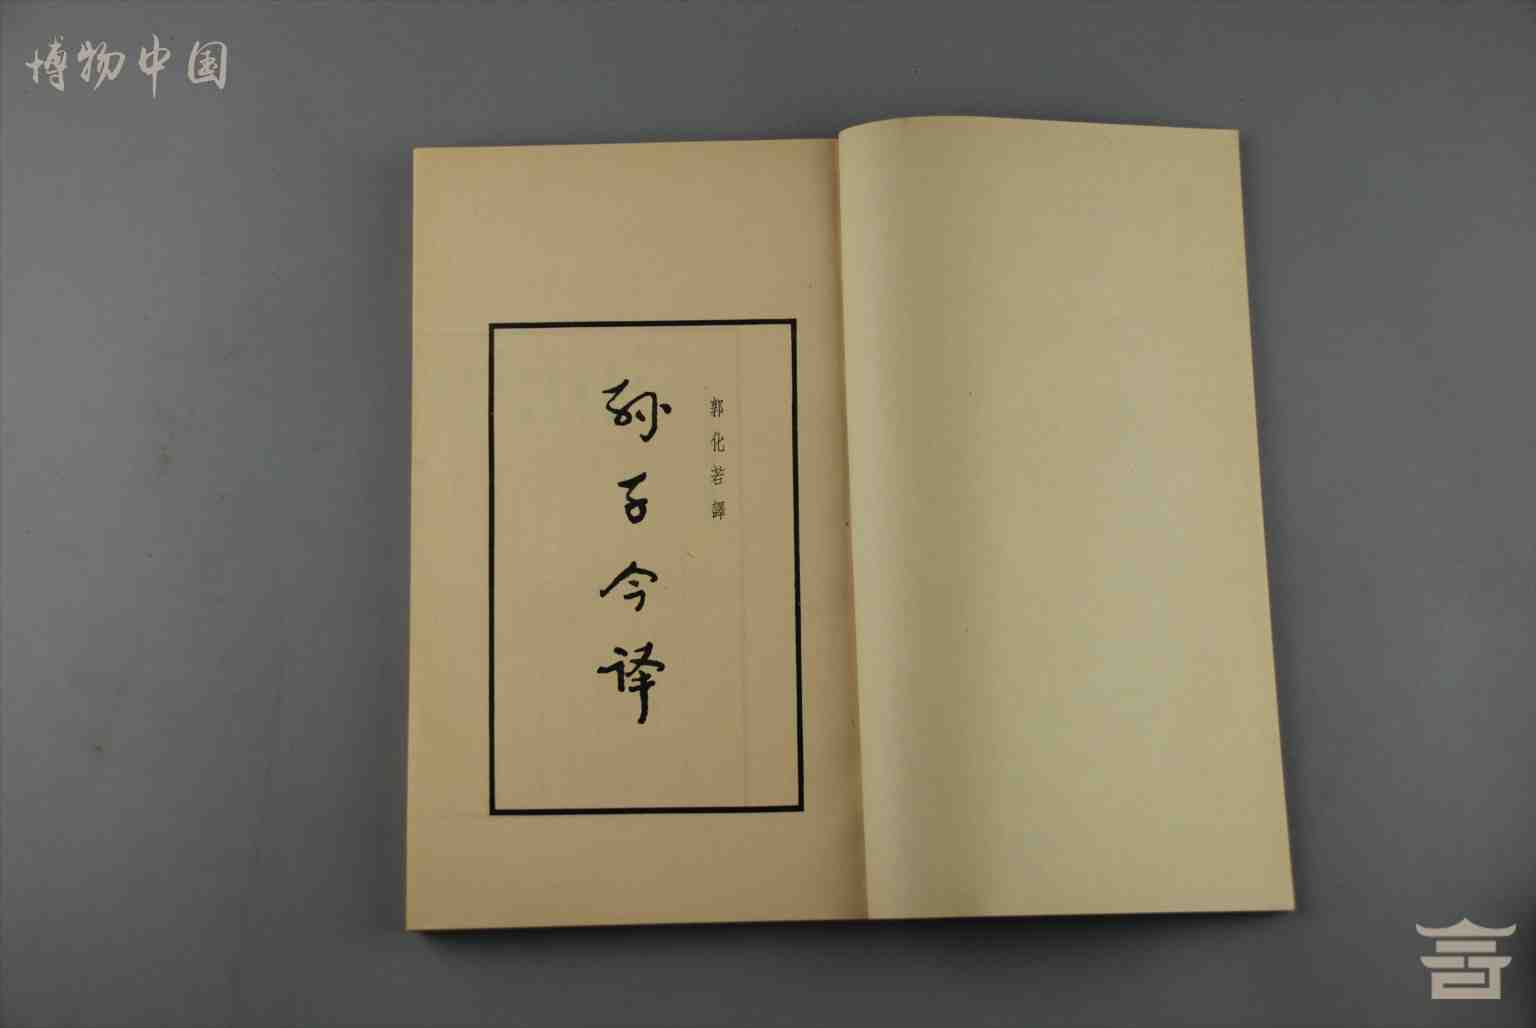 博物中国
郭化若譯
孙子今译